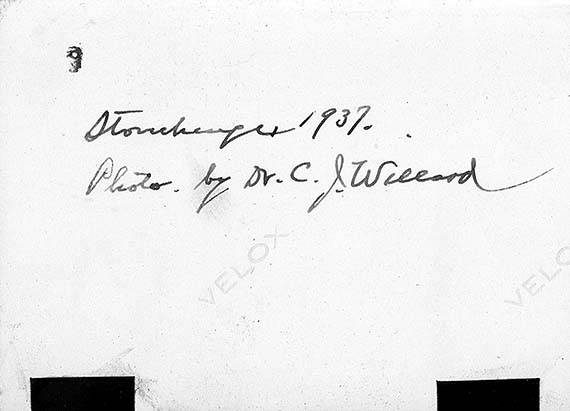 Stonehenge 1937.
Photo. by Dr. C. J. Willard
VELOX
VELOX